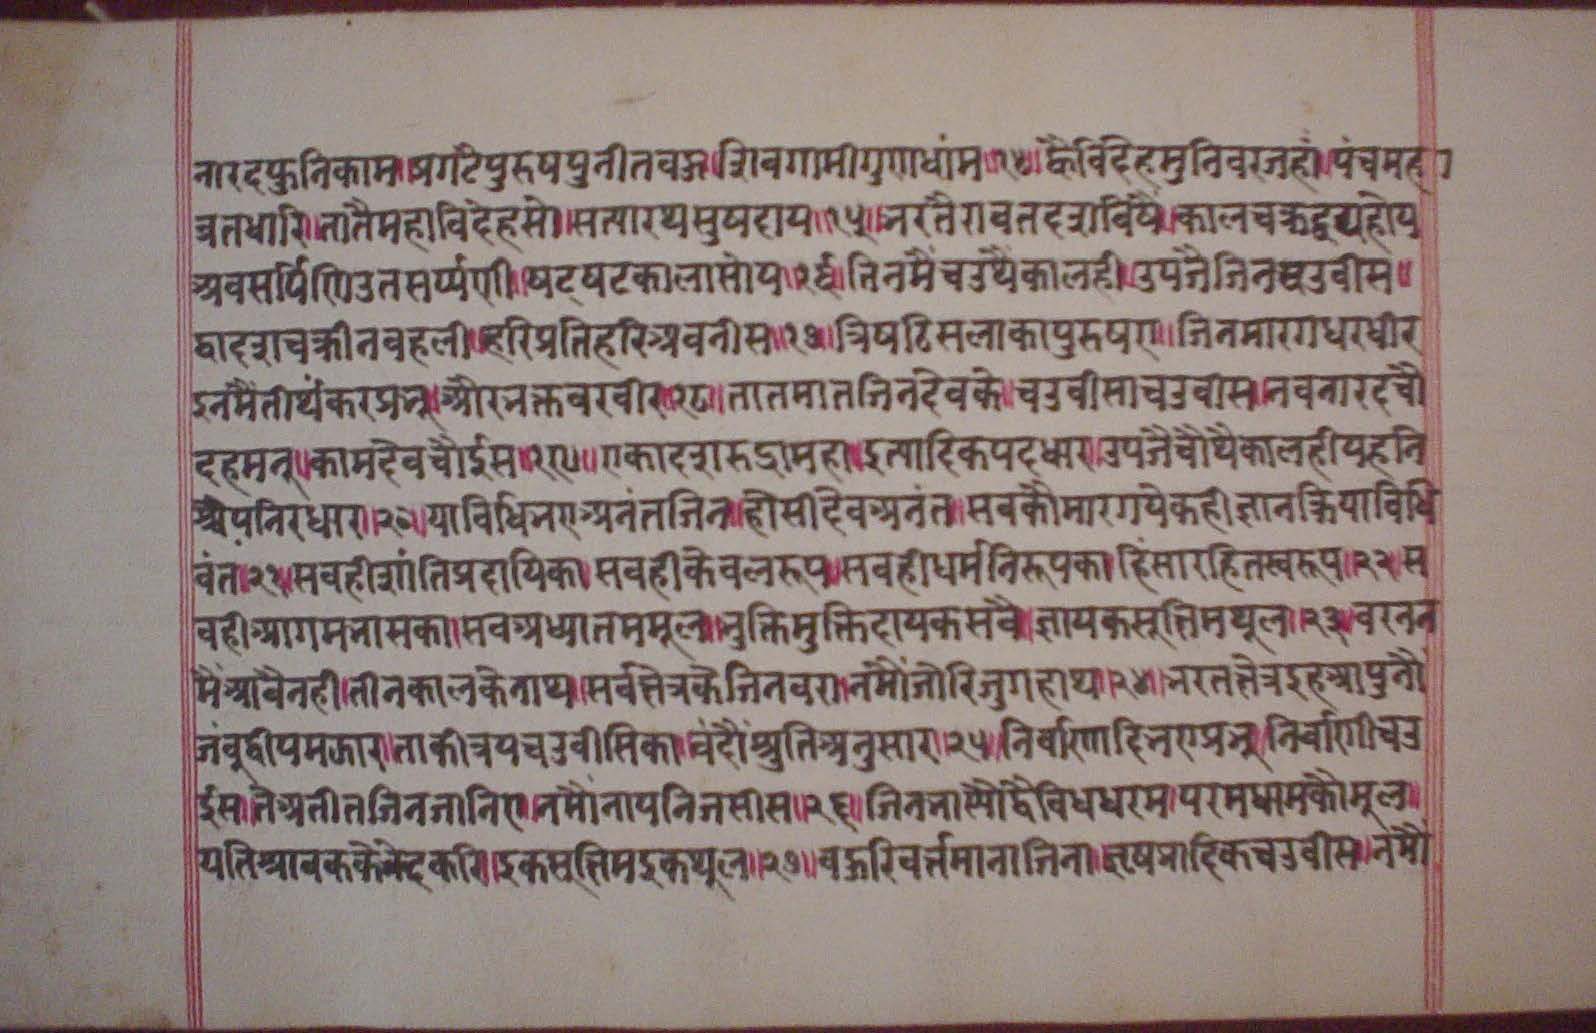 नारदफुनिकाम॥प्रगटैपुरुषपुनीतवऊ॥शिवगामीगुणधांम॥१४॥ह्वैविदेहमुनिवरजहां॥पंचमहा
व्रतधारि॥तातैमहाविदेहसो॥सत्यारथसुषदाय॥१५॥भरतैरावतदशविषै॥कालचक्रद्वयहोय
अवसर्पिणिउतसर्प्पणी॥षट्षटकालासोय॥१६॥तिनमैचउथैकालही॥उपजैजिनचउवीस॥
द्वादशचक्रीनवहली॥हरिप्रतिहरिअवनीस॥१७॥त्रिषटिसलाकापुरुषए॥जिनमारगधरधीर
इनमैंतीर्थंकरप्रभू॥औरभक्तवरवीर॥१८॥तातमातजिनदेवके॥चउवीसाचउवीस॥नवनारदचौ
दहमनू॥कामदेवचौईस॥१९॥एकादशरुद्रामहा॥इत्यादिकपदधार॥उपजैचौथैकालहीयहनि
श्चैपनिरधार॥२०॥याविधिभएअनंतजिन॥होसीदेवअनंत॥सवकौमारगयेकहीज्ञानक्रियाविधि
वंत॥२१॥सवहीशांतिप्रदायिका॥सवहीकेवलरूप॥सवहीधर्मनिरूपका॥हिंसारहितस्वरूप॥२२॥स
वहीआगमभासका॥सवअध्यातममूल॥भुक्तिमुक्तिदायकसवै॥ज्ञायकसूक्तिमथूल॥२३॥वरनन
मैंआवैनही॥तीनकालकेनाथ॥सर्वक्षेत्रकेजिनवरा॥नमौंजोरिजुगहाथ॥२४॥भरतक्षेत्रइहआपुनौं
जंवूद्वीपमझार॥ताकीत्रयचउवीसिका॥वंदौंश्रुतिअनुसार॥२५॥निर्वाणादिभएप्रभू॥निर्वाणीचउ
ईस॥तेअतीतजिनजानिए॥नमौंनायनिजसीस॥२६॥जिनभास्यौद्वैविधधरम॥परमधामकौमूल॥
यतिश्रावककेभेदकरि॥इकसूक्षिमइकथूल॥२७॥वऊरिवर्त्तमानाजिना॥ऋषभादिकचउवीस॥नमौं